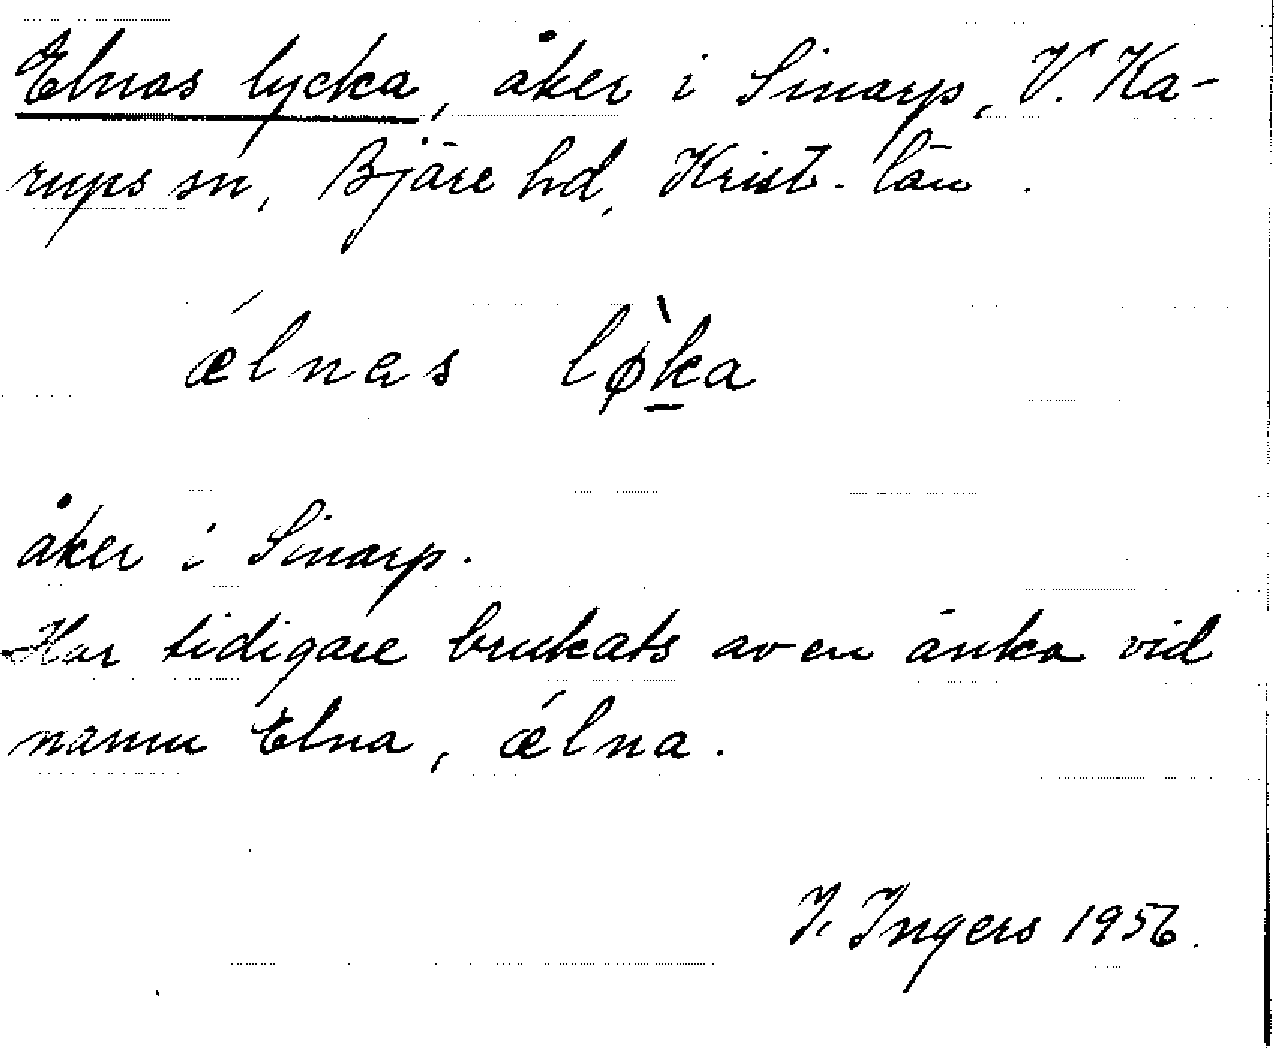 Elnas lycka, åker i Sinarp, V. Ka-
rups sn, Bjäre hd, Krist. län.
ǽlnas lø̀ka
åker i Sinarp.
Har tidigare brukats av en änka vid
namn Elna, ǽlna.
I. Ingers 1956.